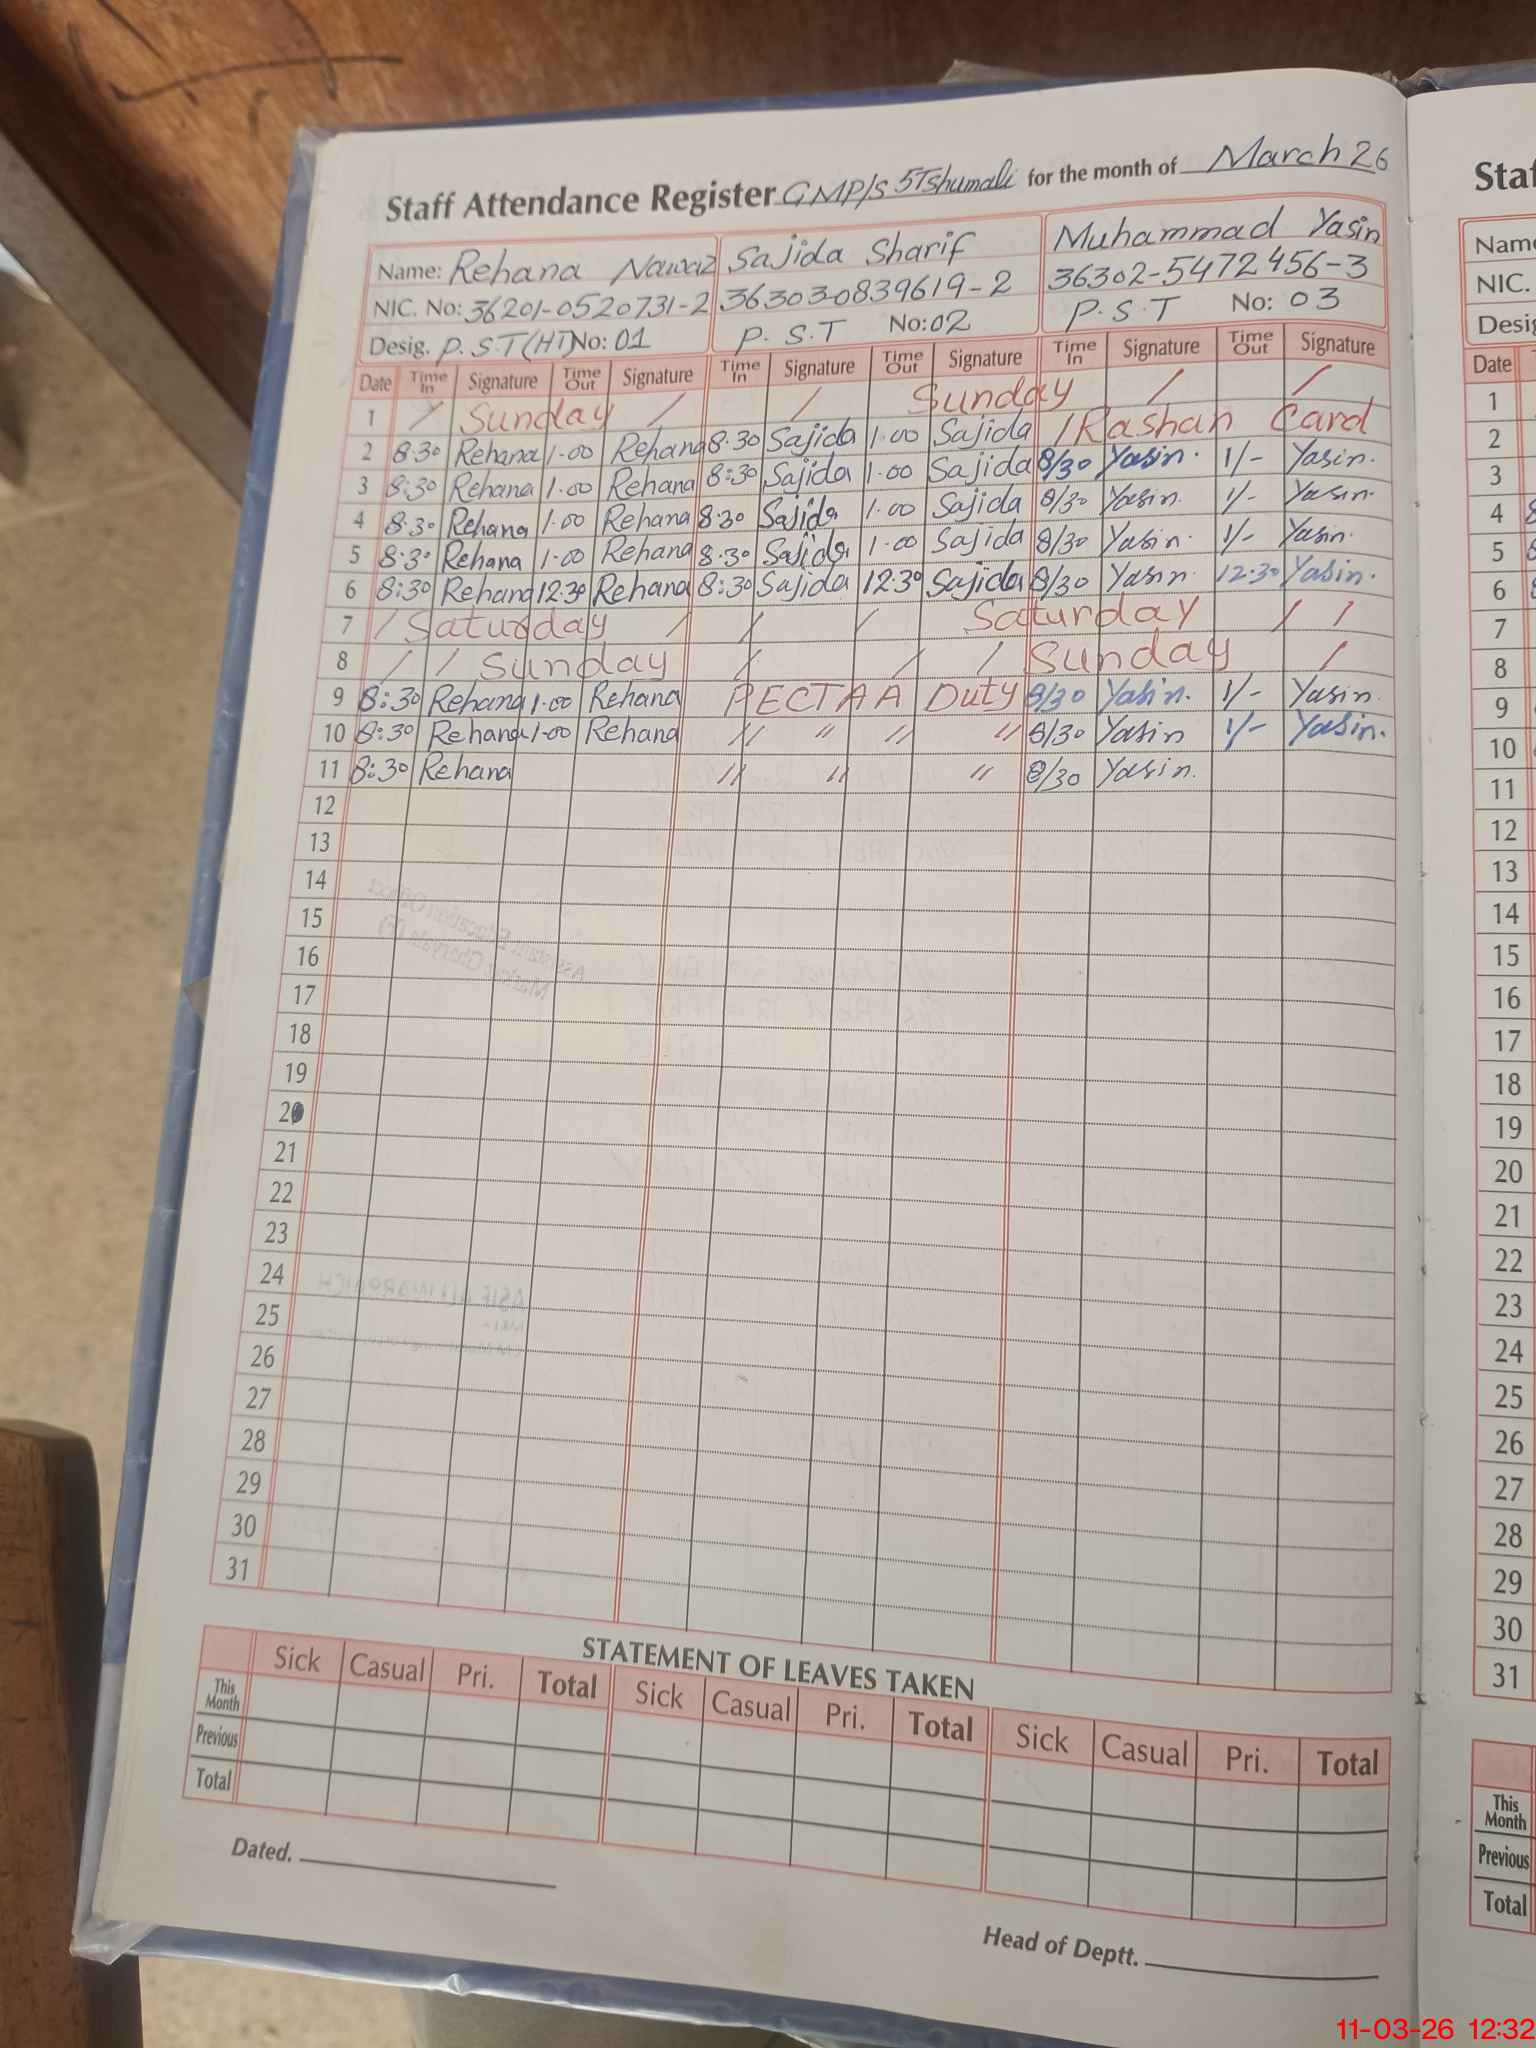 Staff Attendance Register GMP/S 5Tshumali for the month of March 26
Name: Rehana Nawaz Sajida Sharif Muhammad Yasin
NIC. No: 36201-0520731-2 36303-0839619-2 36302-5472456-3
Desig. P.S.T(HT) No: 01 P.S.T No: 02 P.S.T No: 03
Date Time In Signature Time Out Signature Time In Signature Time Out Signature Time In Signature Time Out Signature
1 / Sunday / / Sunday / /
2 8:30 Rehana 1.00 Rehana 8.30 Sajida 1.00 Sajida / Rashan Card
3 8:30 Rehana 1.00 Rehana 8:30 Sajida 1.00 Sajida 8/30 Yasin. 1/- Yasin.
4 8.30 Rehana 1.00 Rehana 8.30 Sajida 1.00 Sajida 8/30 Yasin. 1/- Yasin.
5 8:30 Rehana 1.00 Rehana 8.30 Sajida 1.00 Sajida 8/30 Yasin. 1/- Yasin.
6 8:30 Rehana 12.30 Rehana 8:30 Sajida 12.30 Sajida 8/30 Yasin. 12.30 Yasin.
7 / Saturday / / / Saturday / /
8 / / Sunday / / / Sunday /
9 8:30 Rehana 1.00 Rehana PECTAA Duty 8/30 Yasin. 1/- Yasin.
10 8:30 Rehana 1.00 Rehana " " " " 8/30 Yasin 1/- Yasin.
11 8:30 Rehana " " " 8/30 Yasin.
12
13
14
15
16
17
18
19
20
21
22
23
24
25
26
27
28
29
30
31
STATEMENT OF LEAVES TAKEN
Sick Casual Pri. Total Sick Casual Pri. Total Sick Casual Pri. Total
This Month
Previous
Total
Dated.
Head of Deptt.
Staf
Name
NIC.
Desig
Date
1
2
3
4 8
5 8
6 8
7
8
9
10
11
12
13
14
15
16
17
18
19
20
21
22
23
24
25
26
27
28
29
30
31
This Month
Previous
Total
11-03-26 12:32